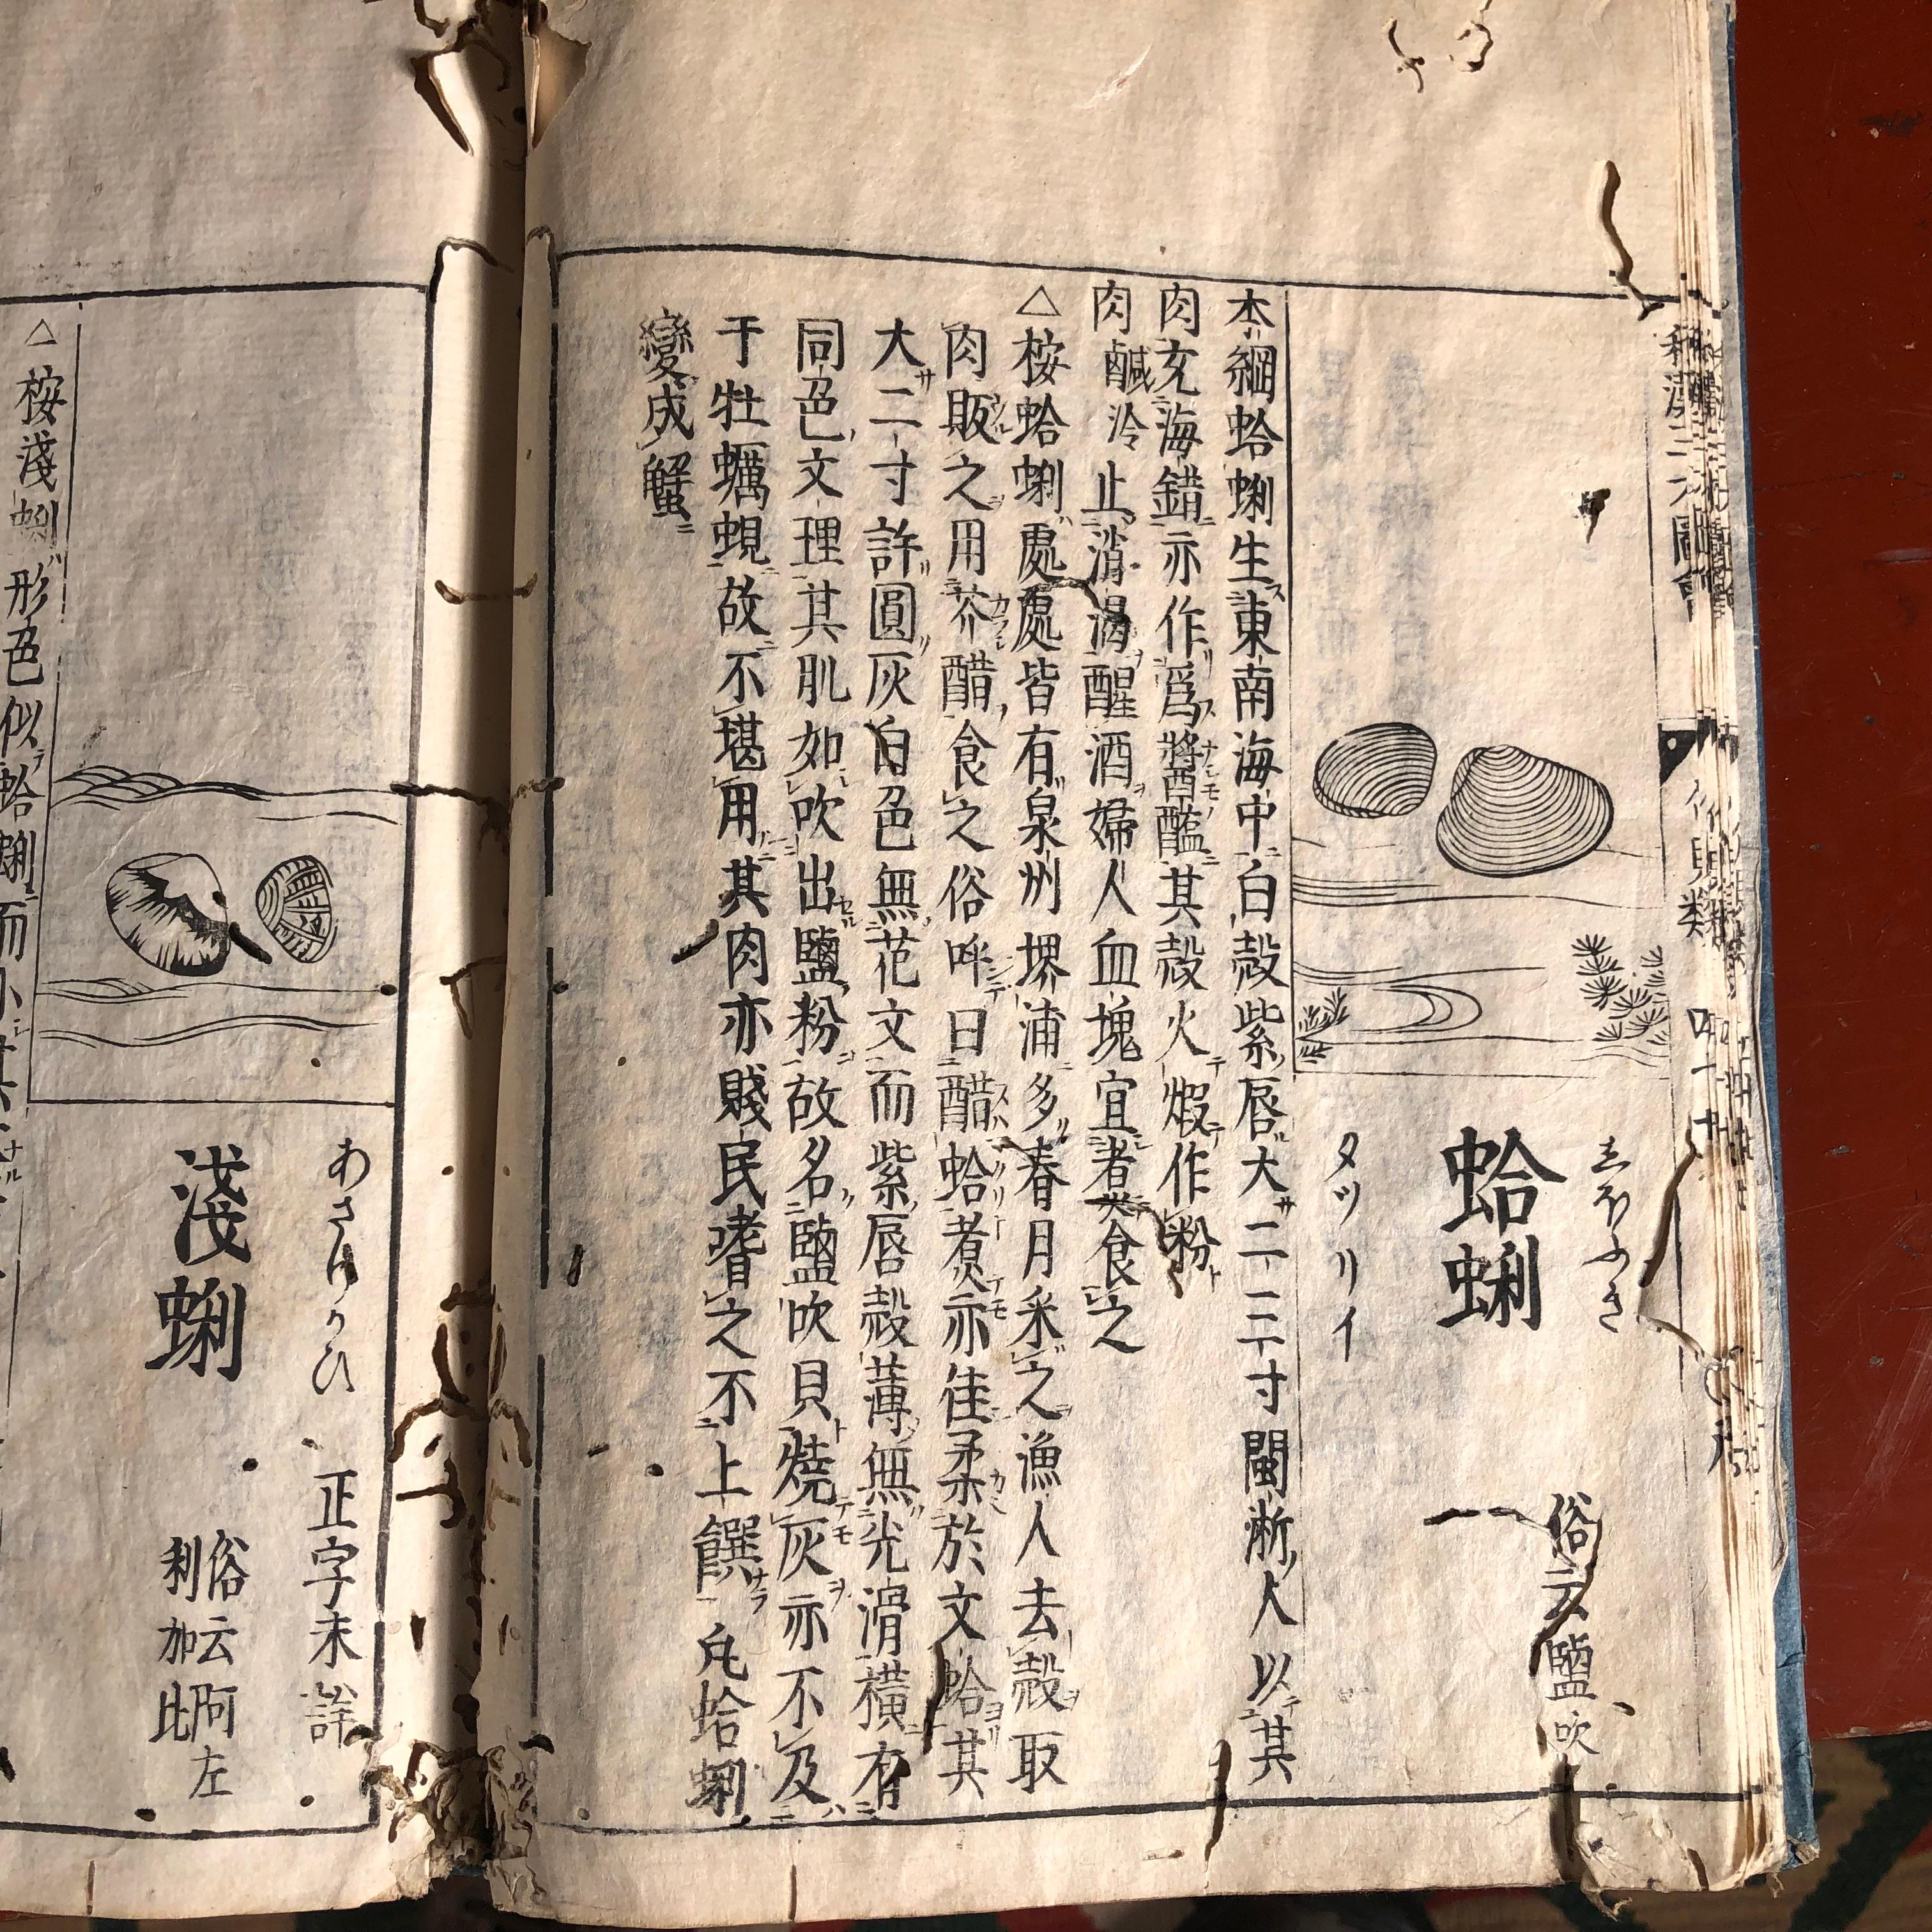 和漢三才圖會
介貝類
四十七
しほふき
蛤蜊
俗云鹽吹
タツリイ
本綱蛤蜊生東南海中白殼紫唇大二三寸閩淅人以其
肉充海錯亦作爲醬醢其殼火煆作粉
肉鹹冷止消渴醒酒婦人血塊宜者煑食之
△按蛤蜊處處皆有泉州堺浦多春月采之漁人去殼取
肉販之用芥醋食之俗呼曰醋蛤煮亦佳柔於文蛤其
大二寸許圓灰白色無花文而紫唇殼薄無光滑橫有
同色文理其肌如吹出鹽粉故名鹽吹貝燒灰亦不及
于牡蠣蜆故不堪用其肉亦賤民嗜之不上饌凡蛤蜊
變成蟹
あさりかひ
淺蜊
正字未詳
俗云阿左
利加比
△按淺蜊形色似蛤蜊而小其